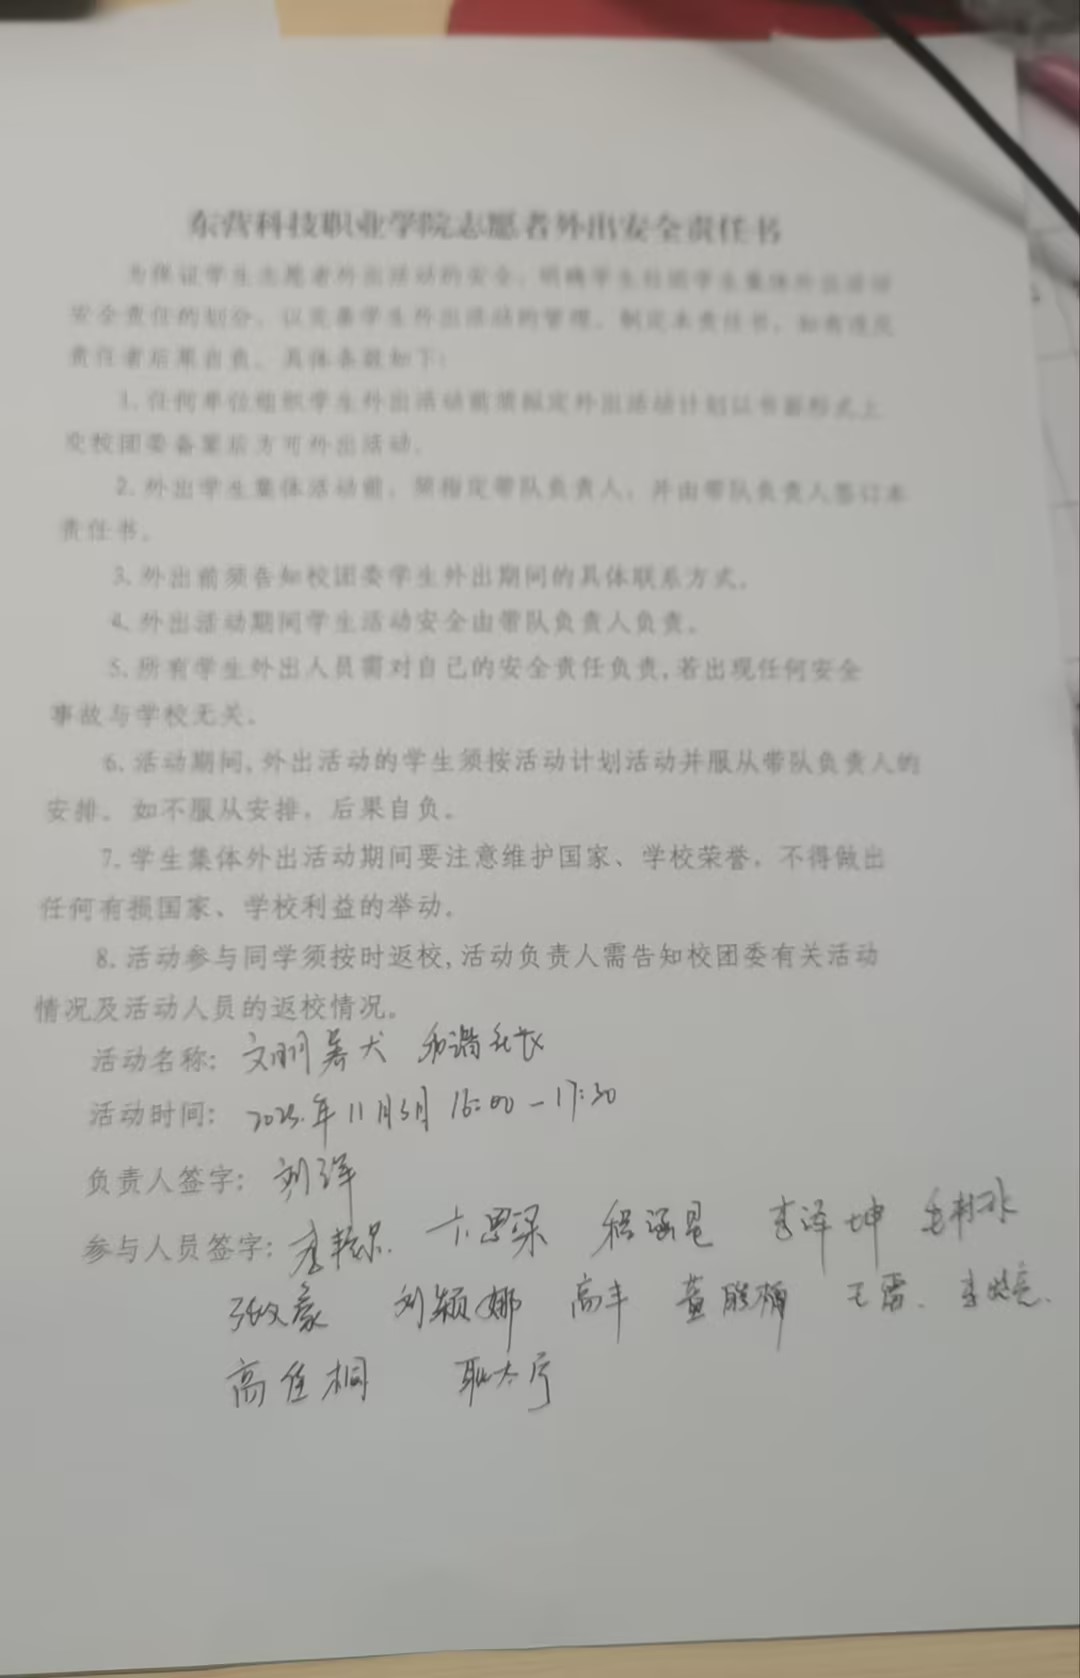 东营科技职业学院志愿者外出安全责任书
为保证学生志愿者外出活动的安全，明确学生社团学生集体外出活动
安全责任的划分，以完善学生外出活动的管理，制定本责任书，如有违反
责任者后果自负。具体条款如下：
1. 任何单位组织学生外出活动前须拟定外出活动计划以书面形式上
交校团委备案后方可外出活动。
2. 外出学生集体活动前，须指定带队负责人，并由带队负责人签订本
责任书。
3. 外出前须告知校团委学生外出期间的具体联系方式。
4. 外出活动期间学生活动安全由带队负责人负责。
5. 所有学生外出人员需对自己的安全责任负责,若出现任何安全
事故与学校无关。
6. 活动期间,外出活动的学生须按活动计划活动并服从带队负责人的
安排。如不服从安排，后果自负。
7. 学生集体外出活动期间要注意维护国家、学校荣誉，不得做出
任何有损国家、学校利益的举动。
8. 活动参与同学须按时返校,活动负责人需告知校团委有关活动
情况及活动人员的返校情况。
活动名称: 文明养犬 和谐
活动时间: 2025.年11月3月 16:00-17:30
负责人签字: 刘洋
参与人员签字: 李 程涵 李泽坤
张文豪 刘颖娜 高丰 董 王雷.
高佳桐 耿